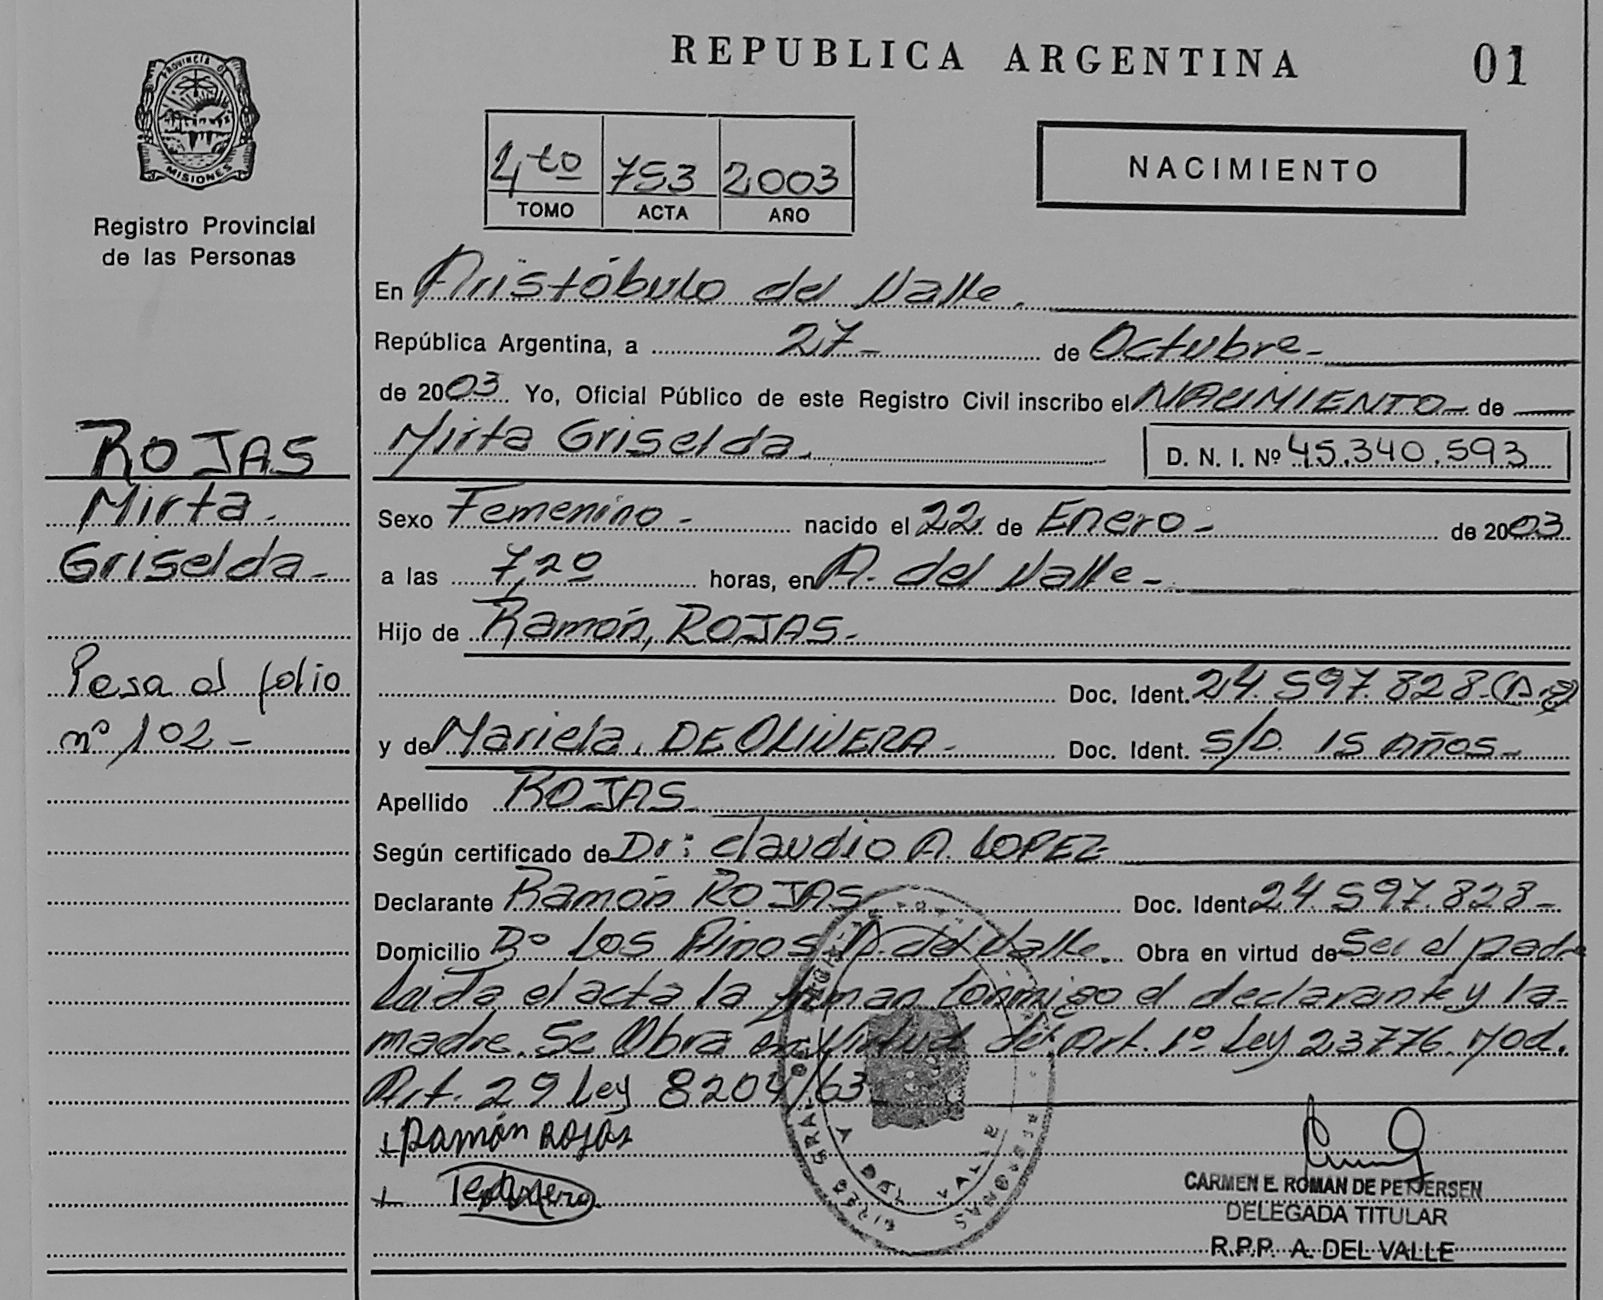 REPUBLICA ARGENTINA
01
PROVINCIA DE
MISIONES
Registro Provincial
de las Personas
4to 753 2003
TOMO ACTA AÑO
NACIMIENTO
En Aristóbulo del Valle.
República Argentina, a 27 - de Octubre -
de 2003. Yo, Oficial Público de este Registro Civil inscribo el NACIMIENTO - de
Mirta Griselda. D. N. I. Nº 45.340.593
Sexo Femenino - nacido el 22 de Enero - de 2003
a las 7,20 horas, en A. del Valle -
Hijo de Ramón, ROJAS -
Doc. Ident. 24.597.828
y de Mariela. DE OLIVERA - Doc. Ident. S/D. 15 AÑOS -
Apellido ROJAS
Según certificado de Dr: Claudio A. LOPEZ
Declarante Ramón ROJAS Doc. Ident. 24.597.828 -
Domicilio Bº Los Pinos A. del Valle. Obra en virtud de Ser el padre
Leída el acta la firman conmigo el declarante y la
madre. Se Obra en virtud del Art. 1º Ley 23776. Mod.
Art. 29 Ley 8204/63
Ramón ROJAS
CARMEN E. ROMAN DE PETTERSEN
DELEGADA TITULAR
R.P.P. A. DEL VALLE
ROJAS
Mirta.
Griselda -
Pasa al folio
nº 102 -